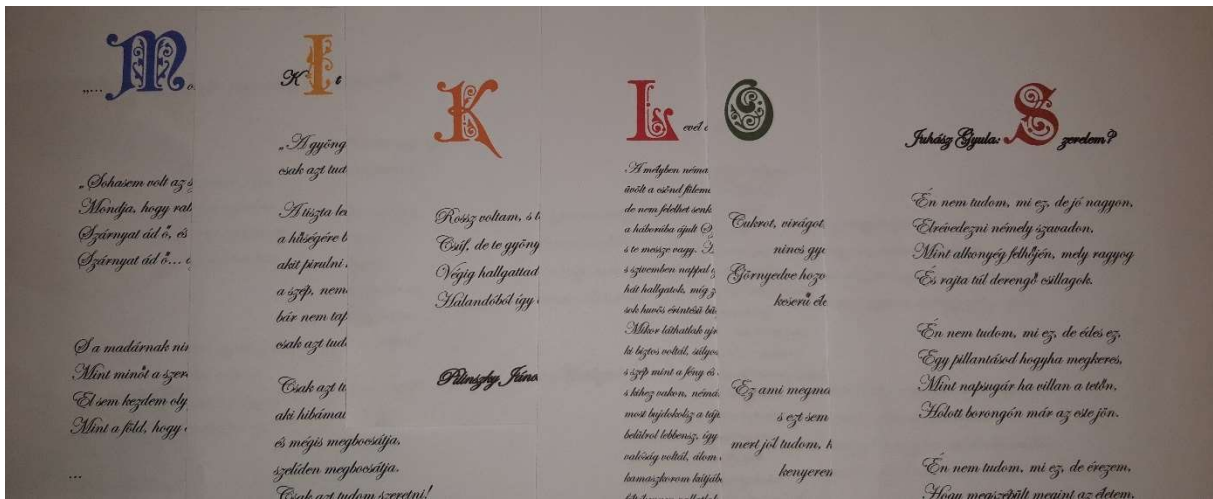 „... M
„Sohasem volt az
Mondja, hogy
Szárnyat ád ő, és
Szárnyat ád ő...
S a madárnak
Mint minőt a
El sem kezdem
Mint a föld, hogy
...
K I
„A
csak azt
A tiszta
a hűségére
akit pirulni
a szép, nem
bár nem
csak azt
Csak azt
aki
és mégis megbocsátja,
szelíden megbocsátja.
Csak azt tudom szeretni!
K
Rossz voltam, s
Csúf, de te
Végig hallgattad
Halandóból így
Pilinszky
L evél
A mélyben néma
üvölt a csönd
de nem felelhet
a háborúba ájult
s te messze vagy.
s szivemben nappal
hát hallgatok, míg
sok huvös érintésü
Mikor láthatlak
ki biztos voltál,
s szép mint a fény és
s kihez vakon,
most bujdokolsz a
belülrol lebbensz, így
valóság voltál, álom
kamaszkorom
O
Cukrot, virágot
nincs
Görnyedve
keserű
Ez ami
s ezt sem
mert jól tudom,
kenyerem
Juhász Gyula: Szerelem?
Én nem tudom, mi ez, de jó nagyon,
Elrévedezni némely szavadon,
Mint alkonyég felhőjén, mely ragyog
És rajta túl derengő csillagok.
Én nem tudom, mi ez, de édes ez,
Egy pillantásod hogyha megkeres,
Mint napsugár ha villan a tetőn,
Holott borongón már az este jön.
Én nem tudom, mi ez, de érezem,
Hogy megszépült megint az életem,